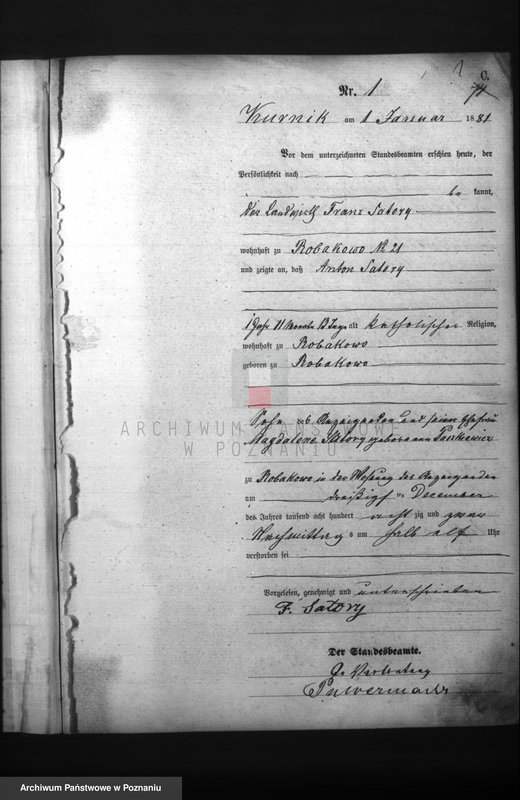 C.
Nr. 1
Kurnik am 1 Januar 1881
Vor dem unterzeichneten Standesbeamten erschien heute, der
Persönlichkeit nach
be kannt,
der Landwirth Franz Satory
wohnhaft zu Robakowo № 21
und zeigte an, daß Anton Satory
1 Jahr 11 Monate 13 Tage alt katholischer Religion,
wohnhaft zu Robakowo
geboren zu Robakowo
ARCHIWUM PAŃSTWOWE
W POZNANIU
Sohn des Anzeigenden und seiner Ehefrau
Magdalene Satory geborenen
zu Robakowo in der Wohnung des Anzeigenden
am dreißigsten December
des Jahres tausend acht hundert achtzig und
Nachmittag s um halb elf Uhr
verstorben sei
Vorgelesen, genehmigt und unterschrieben
F. Satory
Der Standesbeamte.
Archiwum Państwowe w Poznaniu